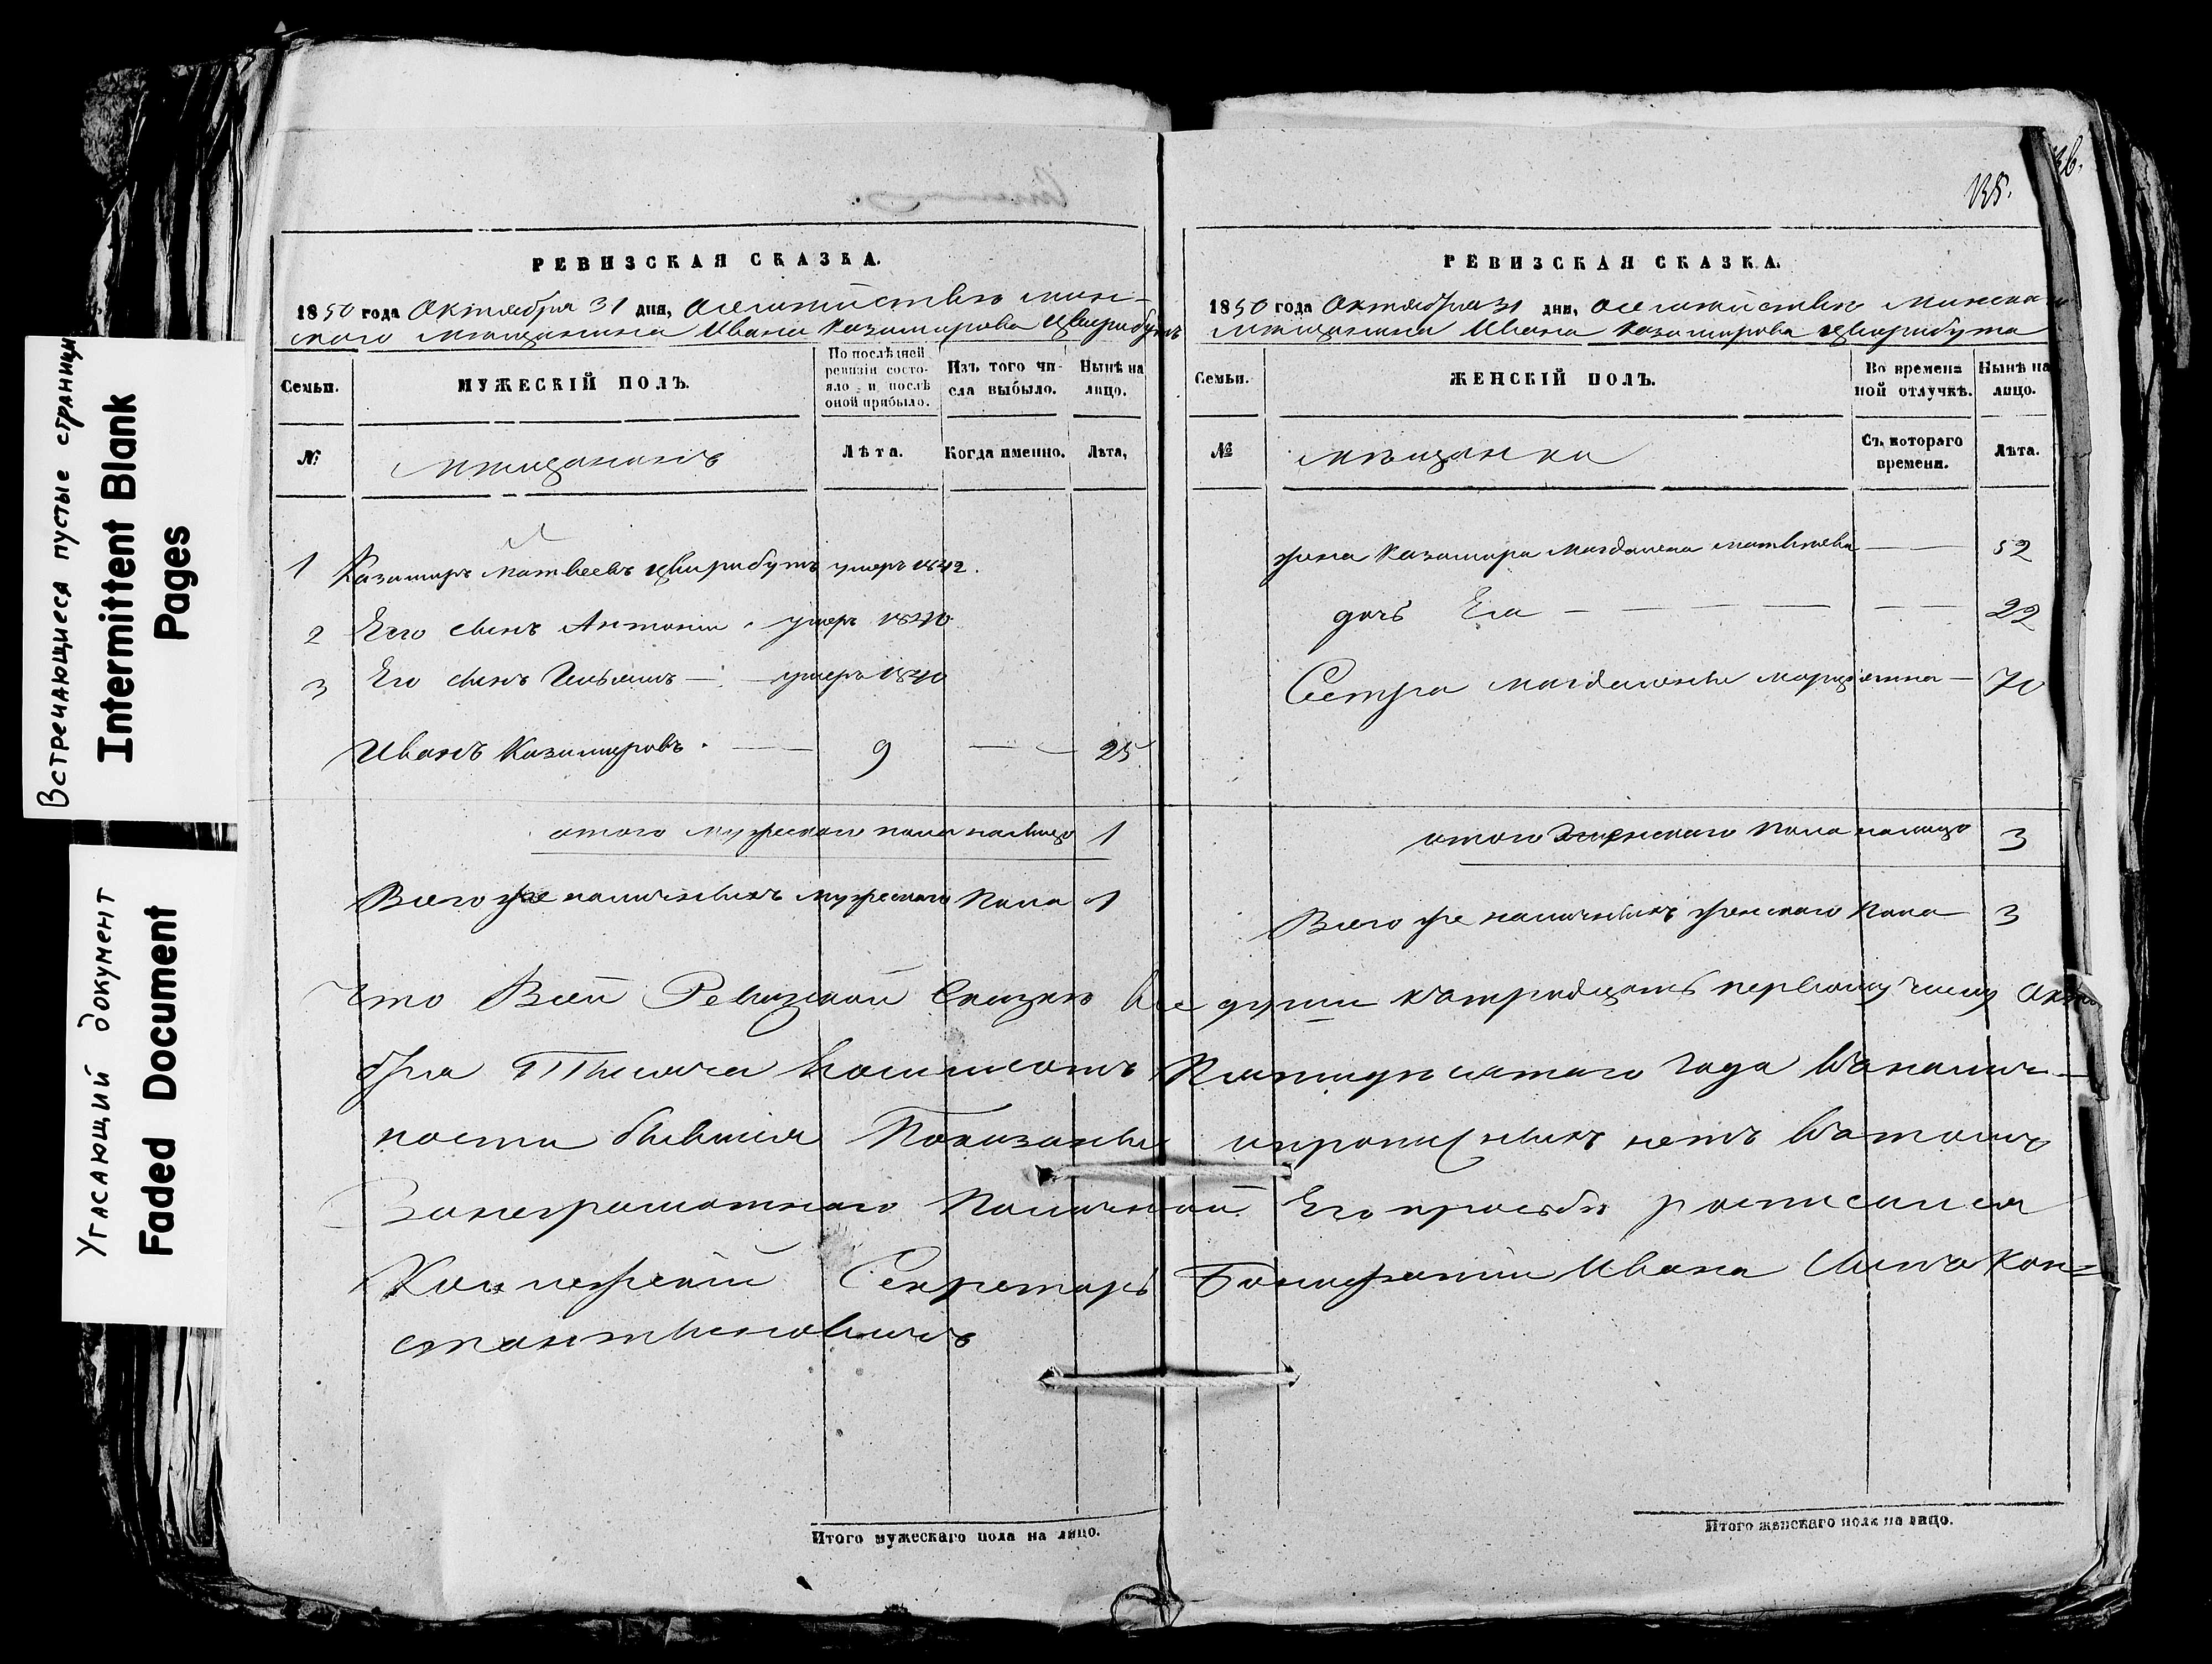 Встречающиеся пустые страницы
Intermittent Blank
Pages
Угасающий документ
Faded Document
РЕВИЗСКАЯ СКАЗКА.
1850 года Октября 31 дня, о семействѣ мин-
ского мѣщанина Ивана Казимирова Цвирибутъ
Семьи.
МУЖЕСКІЙ ПОЛЪ.
По послѣдней
ревизіи состо-
яло и послѣ
оной прибыло.
Изъ того чи-
сла выбыло.
Нынѣ на
лицо.
№
мѣщанинъ
Лѣта.
Когда именно.
Лѣта,
1 Казимиръ Матвеевъ Цвирибутъ умеръ 1842.
2 Его сынъ Антоній умеръ 1840
3 Его сынъ умеръ 1840
Иванъ Казимировъ. 9 25
итого мужескаго пола налицо 1
Всего же наличныхъ мужескаго пола 1
135.
РЕВИЗСКАЯ СКАЗКА.
1850 года Октября 31 дня, о семействѣ Минскаго
мѣщанина Ивана Казимирова Цвирибута
Семьи.
ЖЕНСКІЙ ПОЛЪ.
Во времен-
ной отлучкѣ.
Нынѣ на
лицо.
№
мѣщанка
Съ котораго
времени.
Лѣта.
жена Казимира Магдалена Матвѣева 52
дочь Ева 22
Сестра Магдалены Марціянна 70
итого женскаго пола налицо 3
Всего же наличныхъ женскаго пола 3
Что В сей Ревизской Сказкѣ Все души къ тридцать первому числу Октя
бря Тысяча восемьсотъ Пятидесятаго года въ налич-
ности бывшія Показаны и прописныхъ нетъ въ томъ
За неграмотнаго По личной Его просьбѣ росписался
Коллежскій Секретарь Ивана Сынъ Кон=
стантиновичъ
Итого мужескаго пола на лицо.
Итого женскаго пола на лицо.